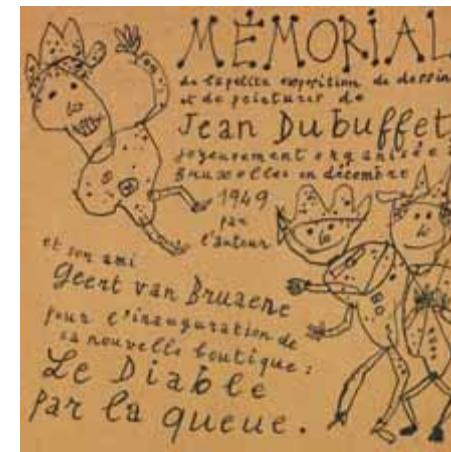 MÉMORIAL
de la petite exposition de dessin
et de peintures de
Jean Dubuffet
joyeusement organisée
Bruxelles en décembre
1949
par
l'auteur
et son ami
Geert van Bruaene
pour l'inauguration de
sa nouvelle boutique :
Le Diable
par la queue.